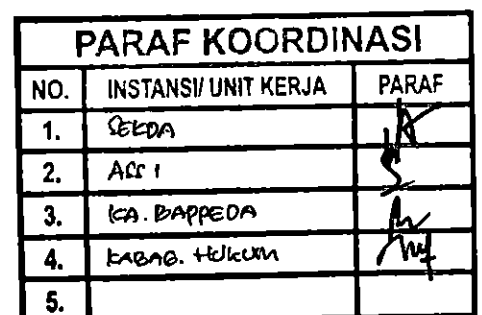 PARAF KOORDINASI
NO. INSTANSI/ UNIT KERJA PARAF
1. SEKDA
2. ASS I
3. KA. BAPPEDA
4. KABAG. HUKUM
5.